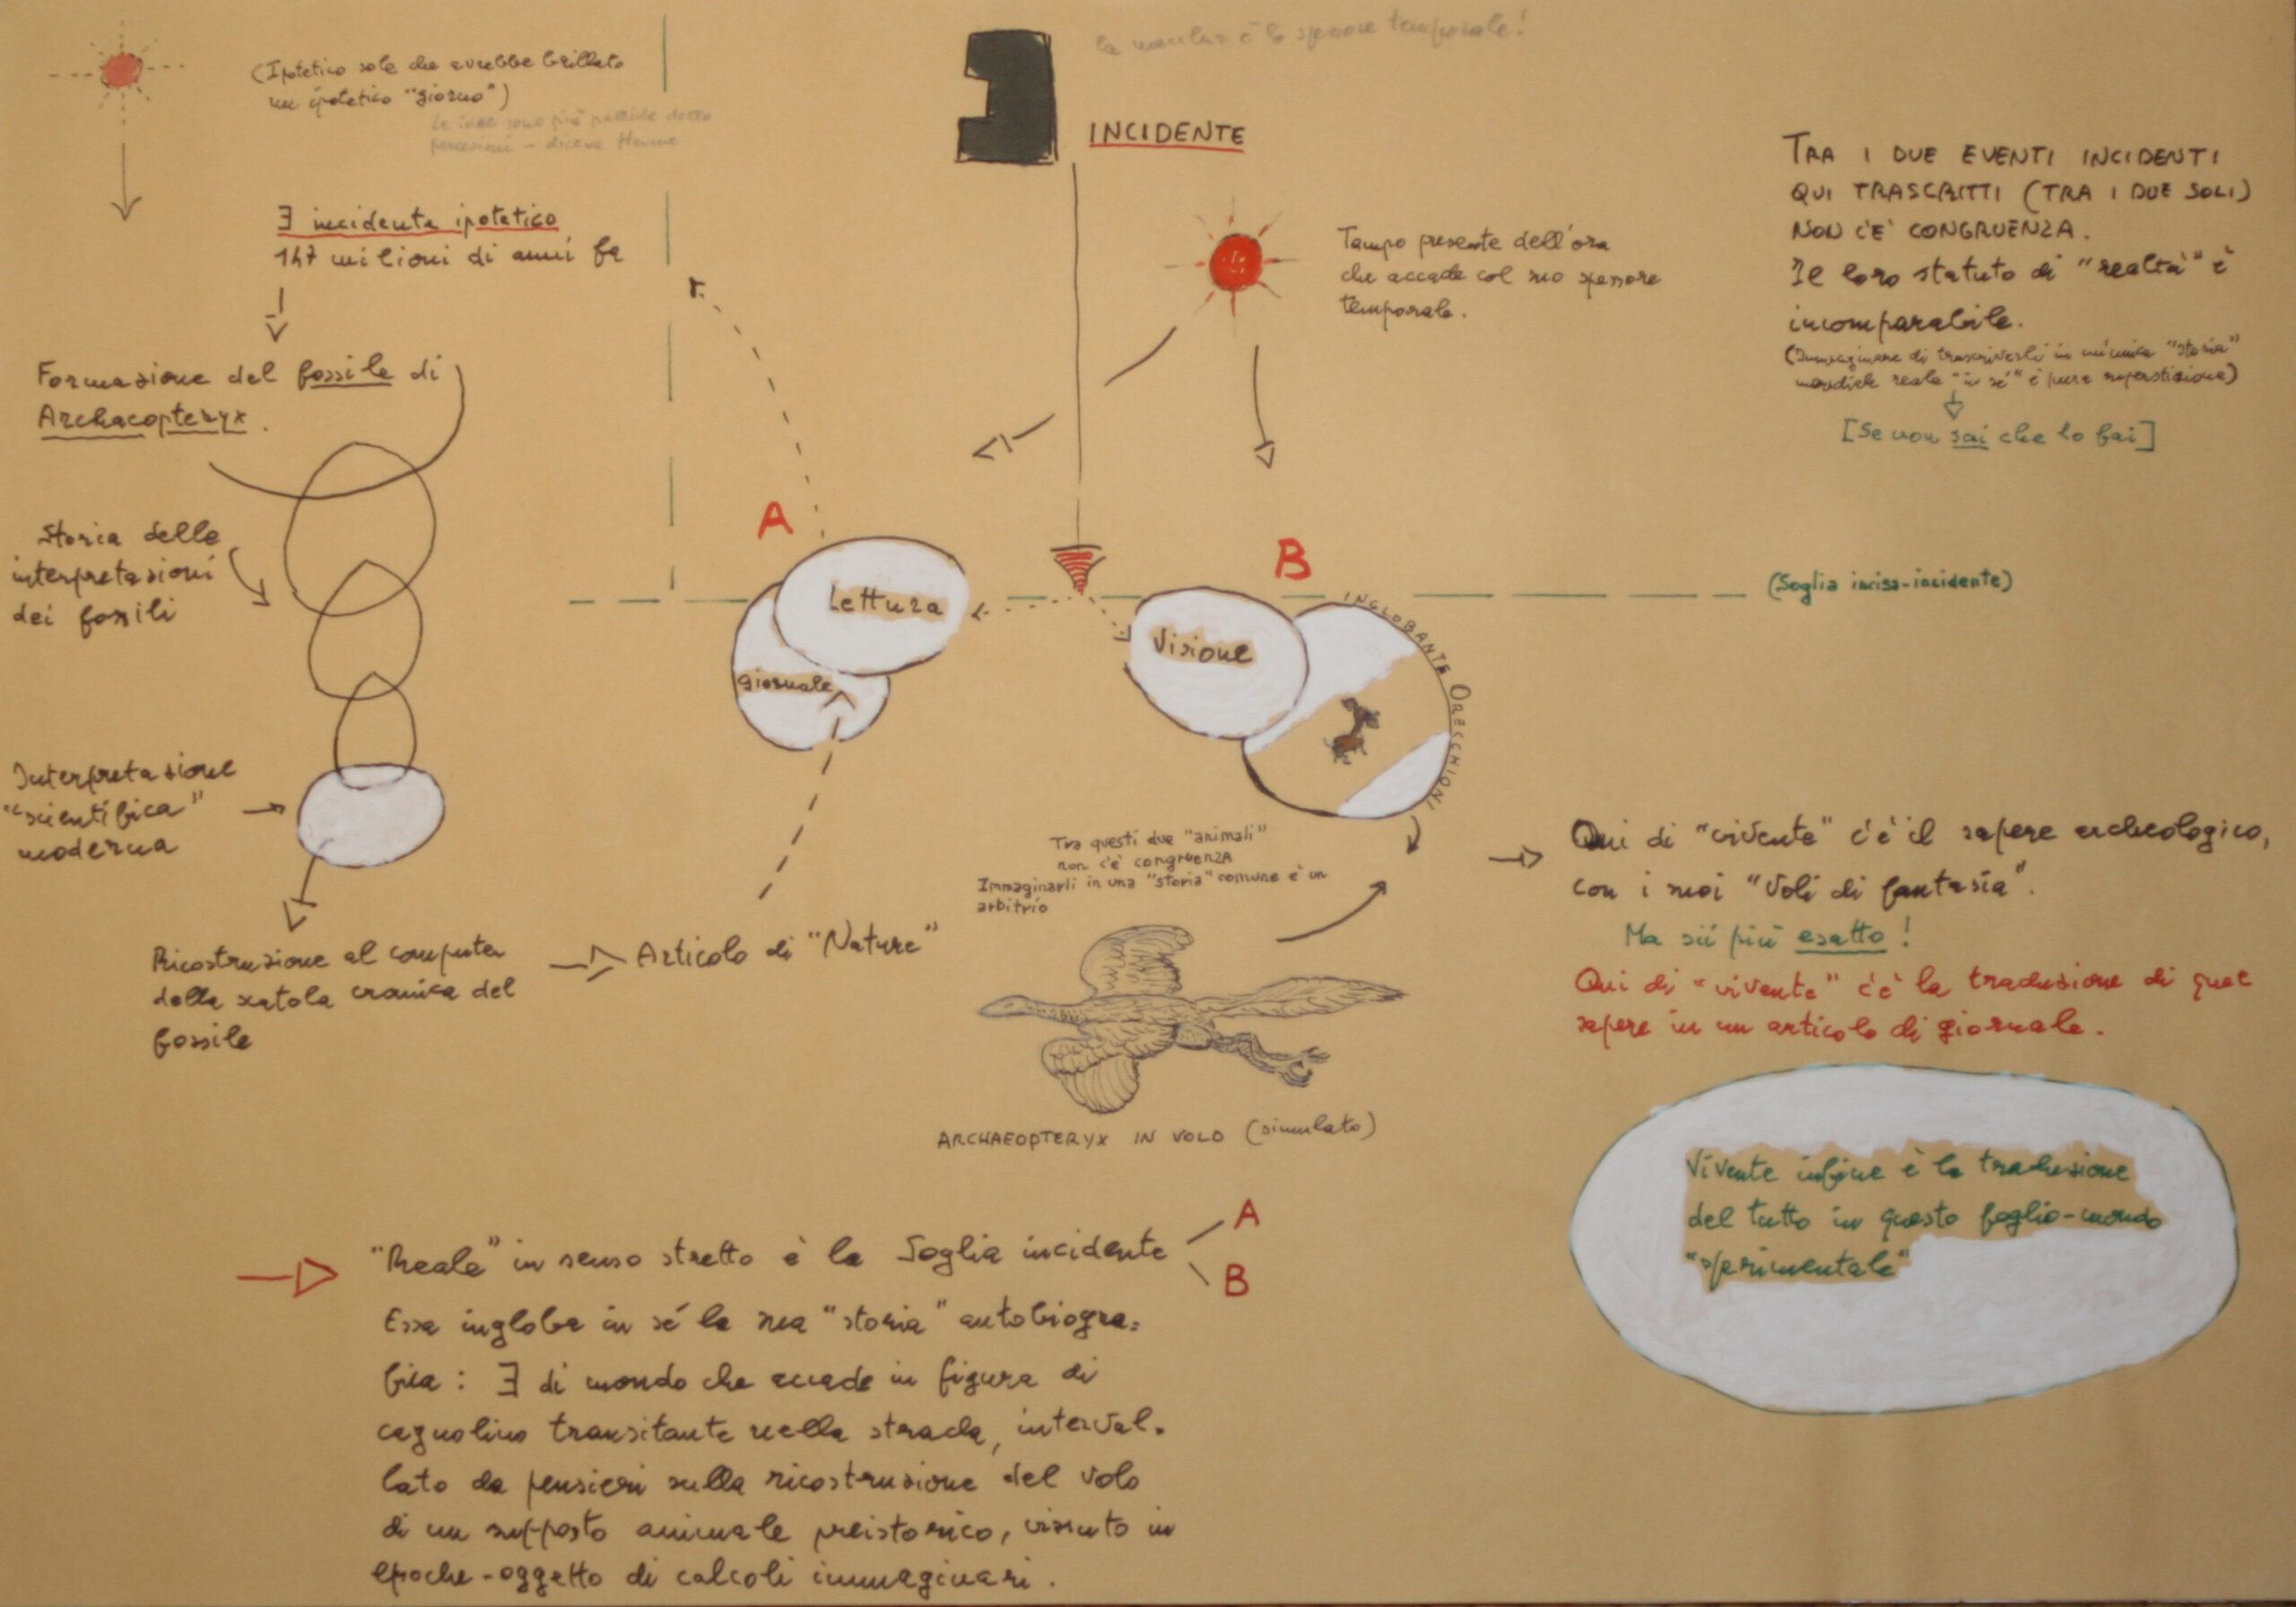 (Ipotetico sole che avrebbe brillato
un ipotetico "giorno")
Le idee sono più pallide delle
percezioni - diceva Hume
∃ incidente ipotetico
147 milioni di anni fa
Formazione del fossile di
Archaeopteryx.
Storia delle
interpretazioni
dei fossili
Interpretazione
"scientifica"
moderna
Ricostruzione al computer
della scatola cranica del
fossile
Articolo di "Nature"
∃
la è lo spessore temporale!
INCIDENTE
Tempo presente dell'ora
che accade col suo spessore
temporale.
TRA I DUE EVENTI INCIDENTI
QUI TRASCRITTI (TRA I DUE SOLI)
NON C'E' CONGRUENZA.
Il loro statuto di "realtà" è
incomparabile.
(Immaginare di trascriverli in un'unica "storia"
mondiale reale "in sé" è pura superstizione)
[Se non sai che lo fai]
A
Lettura
giornale
B
Visione
INGLOBANTE ORECCHIONI
(Soglia inciso-incidente)
Tra questi due "animali"
non c'è congruenza
Immaginarli in una "storia" comune è un
arbitrio
ARCHAEOPTERYX IN VOLO (simulato)
Qui di "vivente" c'è il sapere archeologico,
con i suoi "Voli di fantasia".
Ma sii più esatto!
Qui di "vivente" c'è la traduzione di quel
sapere in un articolo di giornale.
Vivente infine è la traduzione
del tutto in questo foglio-mondo
"sperimentale"
"Reale" in senso stretto è la Soglia incidente
A
B
Essa ingloba in sé la sua "storia" autobiogra=
fica: ∃ di mondo che accade in figura di
cagnolino transitante nella strada, interval-
lato da pensieri sulla ricostruzione del volo
di un supposto animale preistorico, vissuto in
epoche-oggetto di calcoli immaginari.